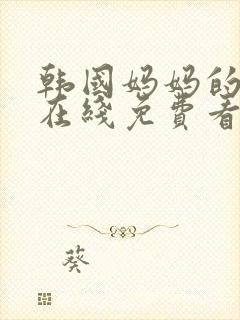 韩国妈妈的
在线免費看
葵